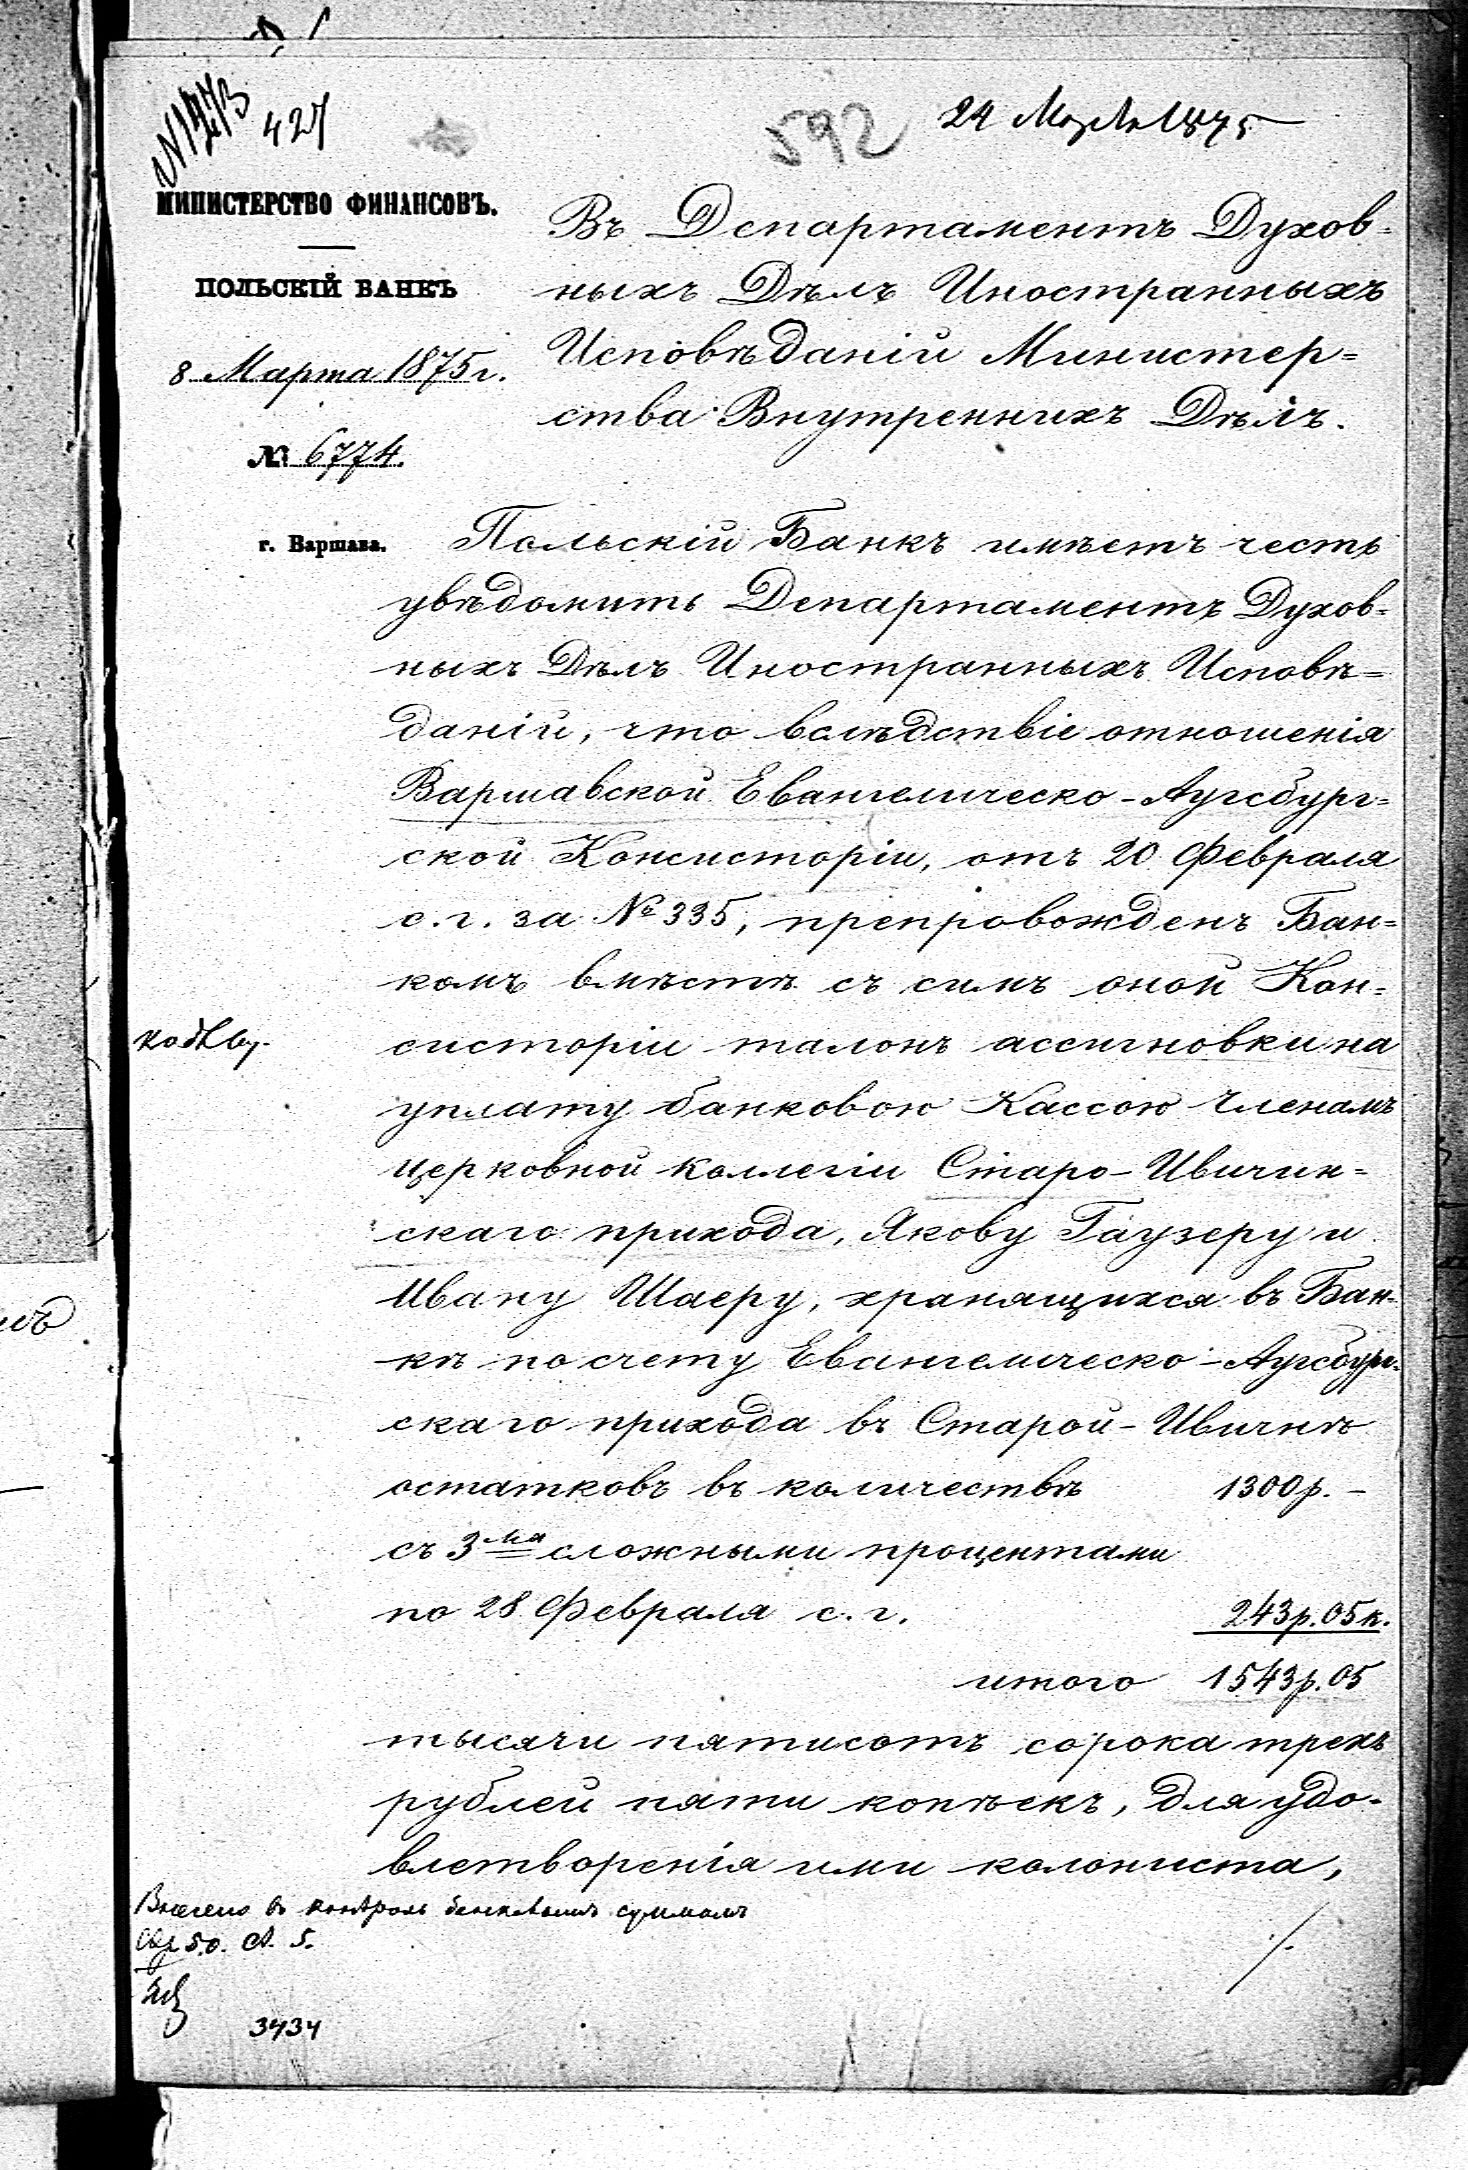 №1273
427
592
24 Марта 1875
МИНИСТЕРСТВО ФИНАНСОВЪ.
ПОЛЬСКІЙ БАНКЪ
8 Марта 1875 г.
№ 6774.
г. Варшава.
Въ Департаментъ Духов=
ныхъ Дѣлъ Иностранныхъ
Исповѣданій Министер=
ства Внутреннихъ Дѣлъ.
Польскій Банкъ имѣетъ честь
увѣдомить Департаментъ Духов=
ныхъ Дѣлъ Иностранныхъ Исповѣ=
даній, что вслѣдствіе отношенія
Варшавской Евангелическо-Аугсбург=
ской Консисторіи, отъ 20 Февраля
с. г. за № 335, препровожденъ Бан=
комъ вмѣстѣ съ симъ оной Кон=
систоріи талонъ ассигновки на
уплату банковою Кассою Членамъ
церковной коллегіи Старо-Ивичин=
скаго прихода, Якову Гаузеру и
Ивану Шаеру, хранящихся въ Бан=
кѣ по счету Евангелическо-Аугсбург=
скаго прихода въ Старой-Ивичнѣ
остатковъ въ количествѣ 1300 р. –
съ 3мя сложными процентами
по 28 Февраля с. г. 243 р. 05 к.
итого 1543 р. 05
тысячи пятисотъ сорока трехъ
рублей пяти копѣекъ, для удо=
влетворенія ими колониста,
Внесено въ контроль банковымъ суммамъ
50. 5.
3434
./.